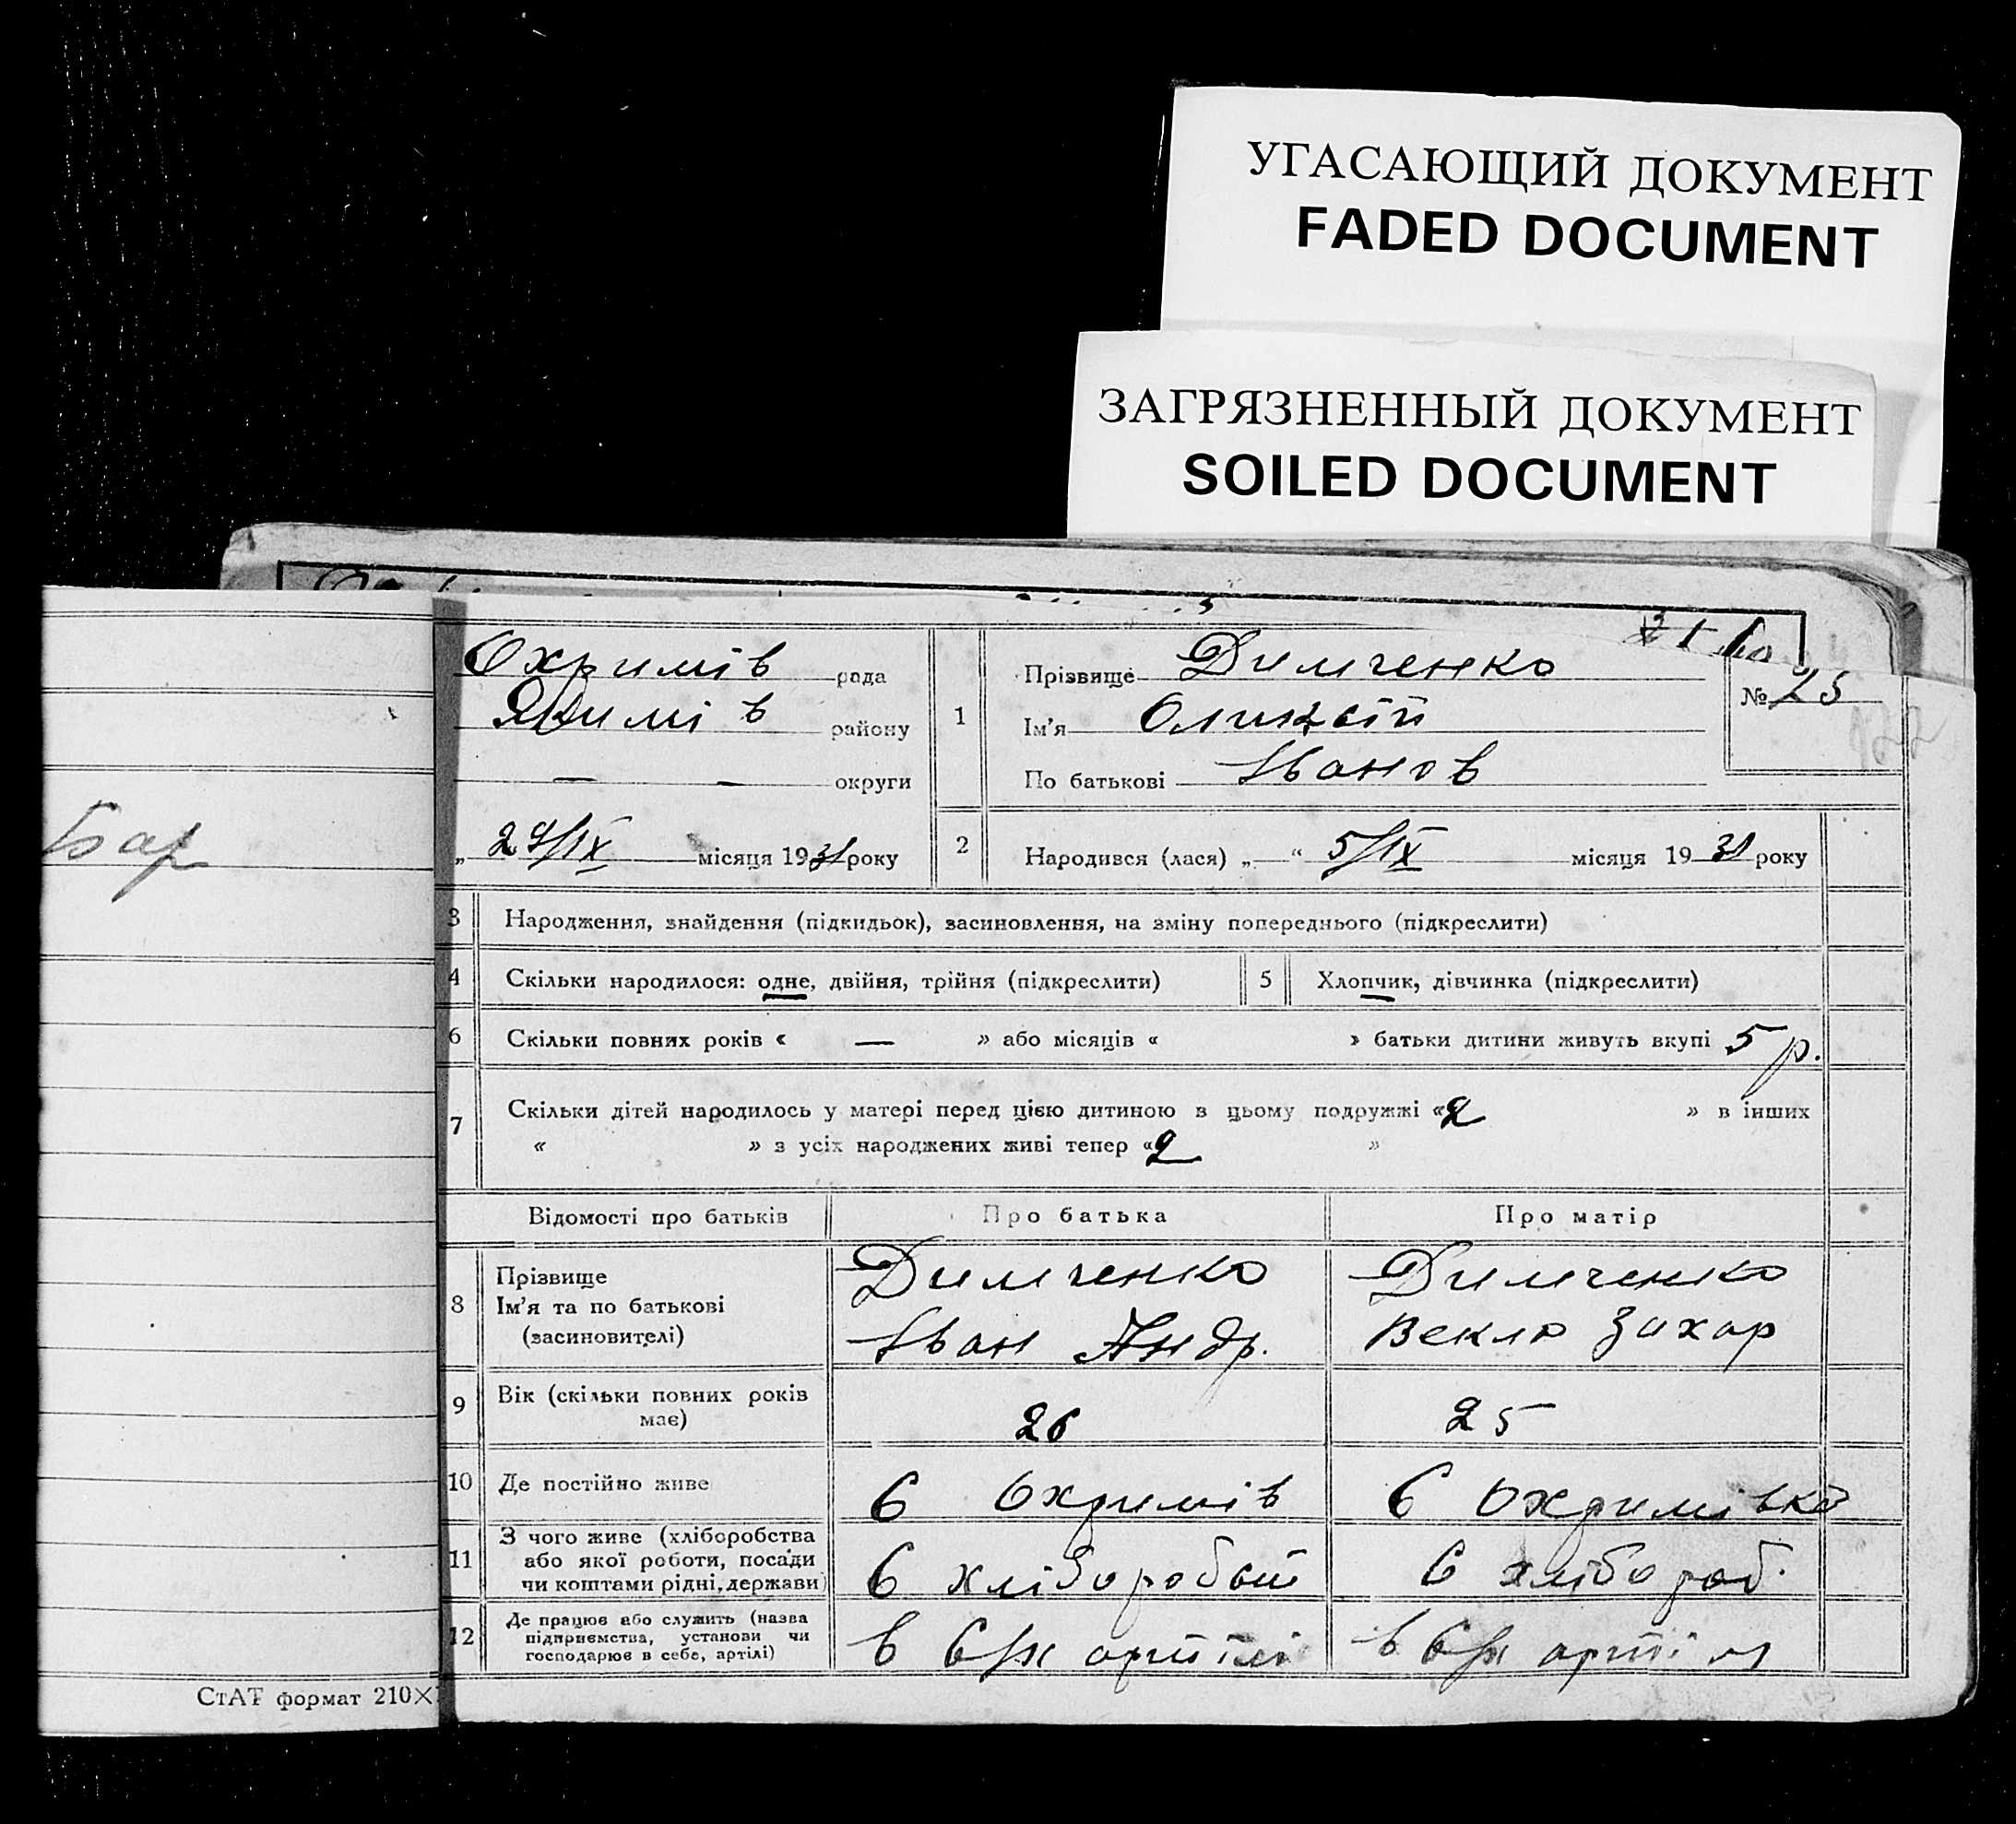 УГАСАЮЩИЙ ДОКУМЕНТ
FADED DOCUMENT
ЗАГРЯЗНЕННЫЙ ДОКУМЕНТ
SOILED DOCUMENT
Бар
СтАТ формат 210×
Охримів рада
Якимів району
— — округи
„ 24/IX місяця 1931 року
1
Прізвище Димченко
Ім'я Оликсій
По батькові Іванов
№ 25
2 Народився (лася) „—“ 5/IX місяця 1931 року
3 Народження, знайдення (підкидьок), засиновлення, на зміну попереднього (підкреслити)
4 Скільки народилося: одне, двійня, трійня (підкреслити) 5 Хлопчик, дівчинка (підкреслити)
6 Скільки повних років « — » або місяців « » батьки дитини живуть вкупі 5 р.
7 Скільки дітей народилось у матері перед цією дитиною в цьому подружжі «2 » в інших
« » з усіх народжених живі тепер «2 »
Відомості про батьків Про батька Про матір
8 Прізвище Димченко Димченко
Ім'я та по батькові
(засиновителі) Іван Андр. Векла Захар
9 Вік (скільки повних років
має) 26 25
10 Де постійно живе с Охримів с Охримівка
11 З чого живе (хліборобства
або якої роботи, посади
чи коштами рідні, держави)
с хлібороб с хлібороб.
12 Де працює або служить (назва
підприємства, установи чи
господарює в себе, артілі)
в с/х артілі в с/х артіл